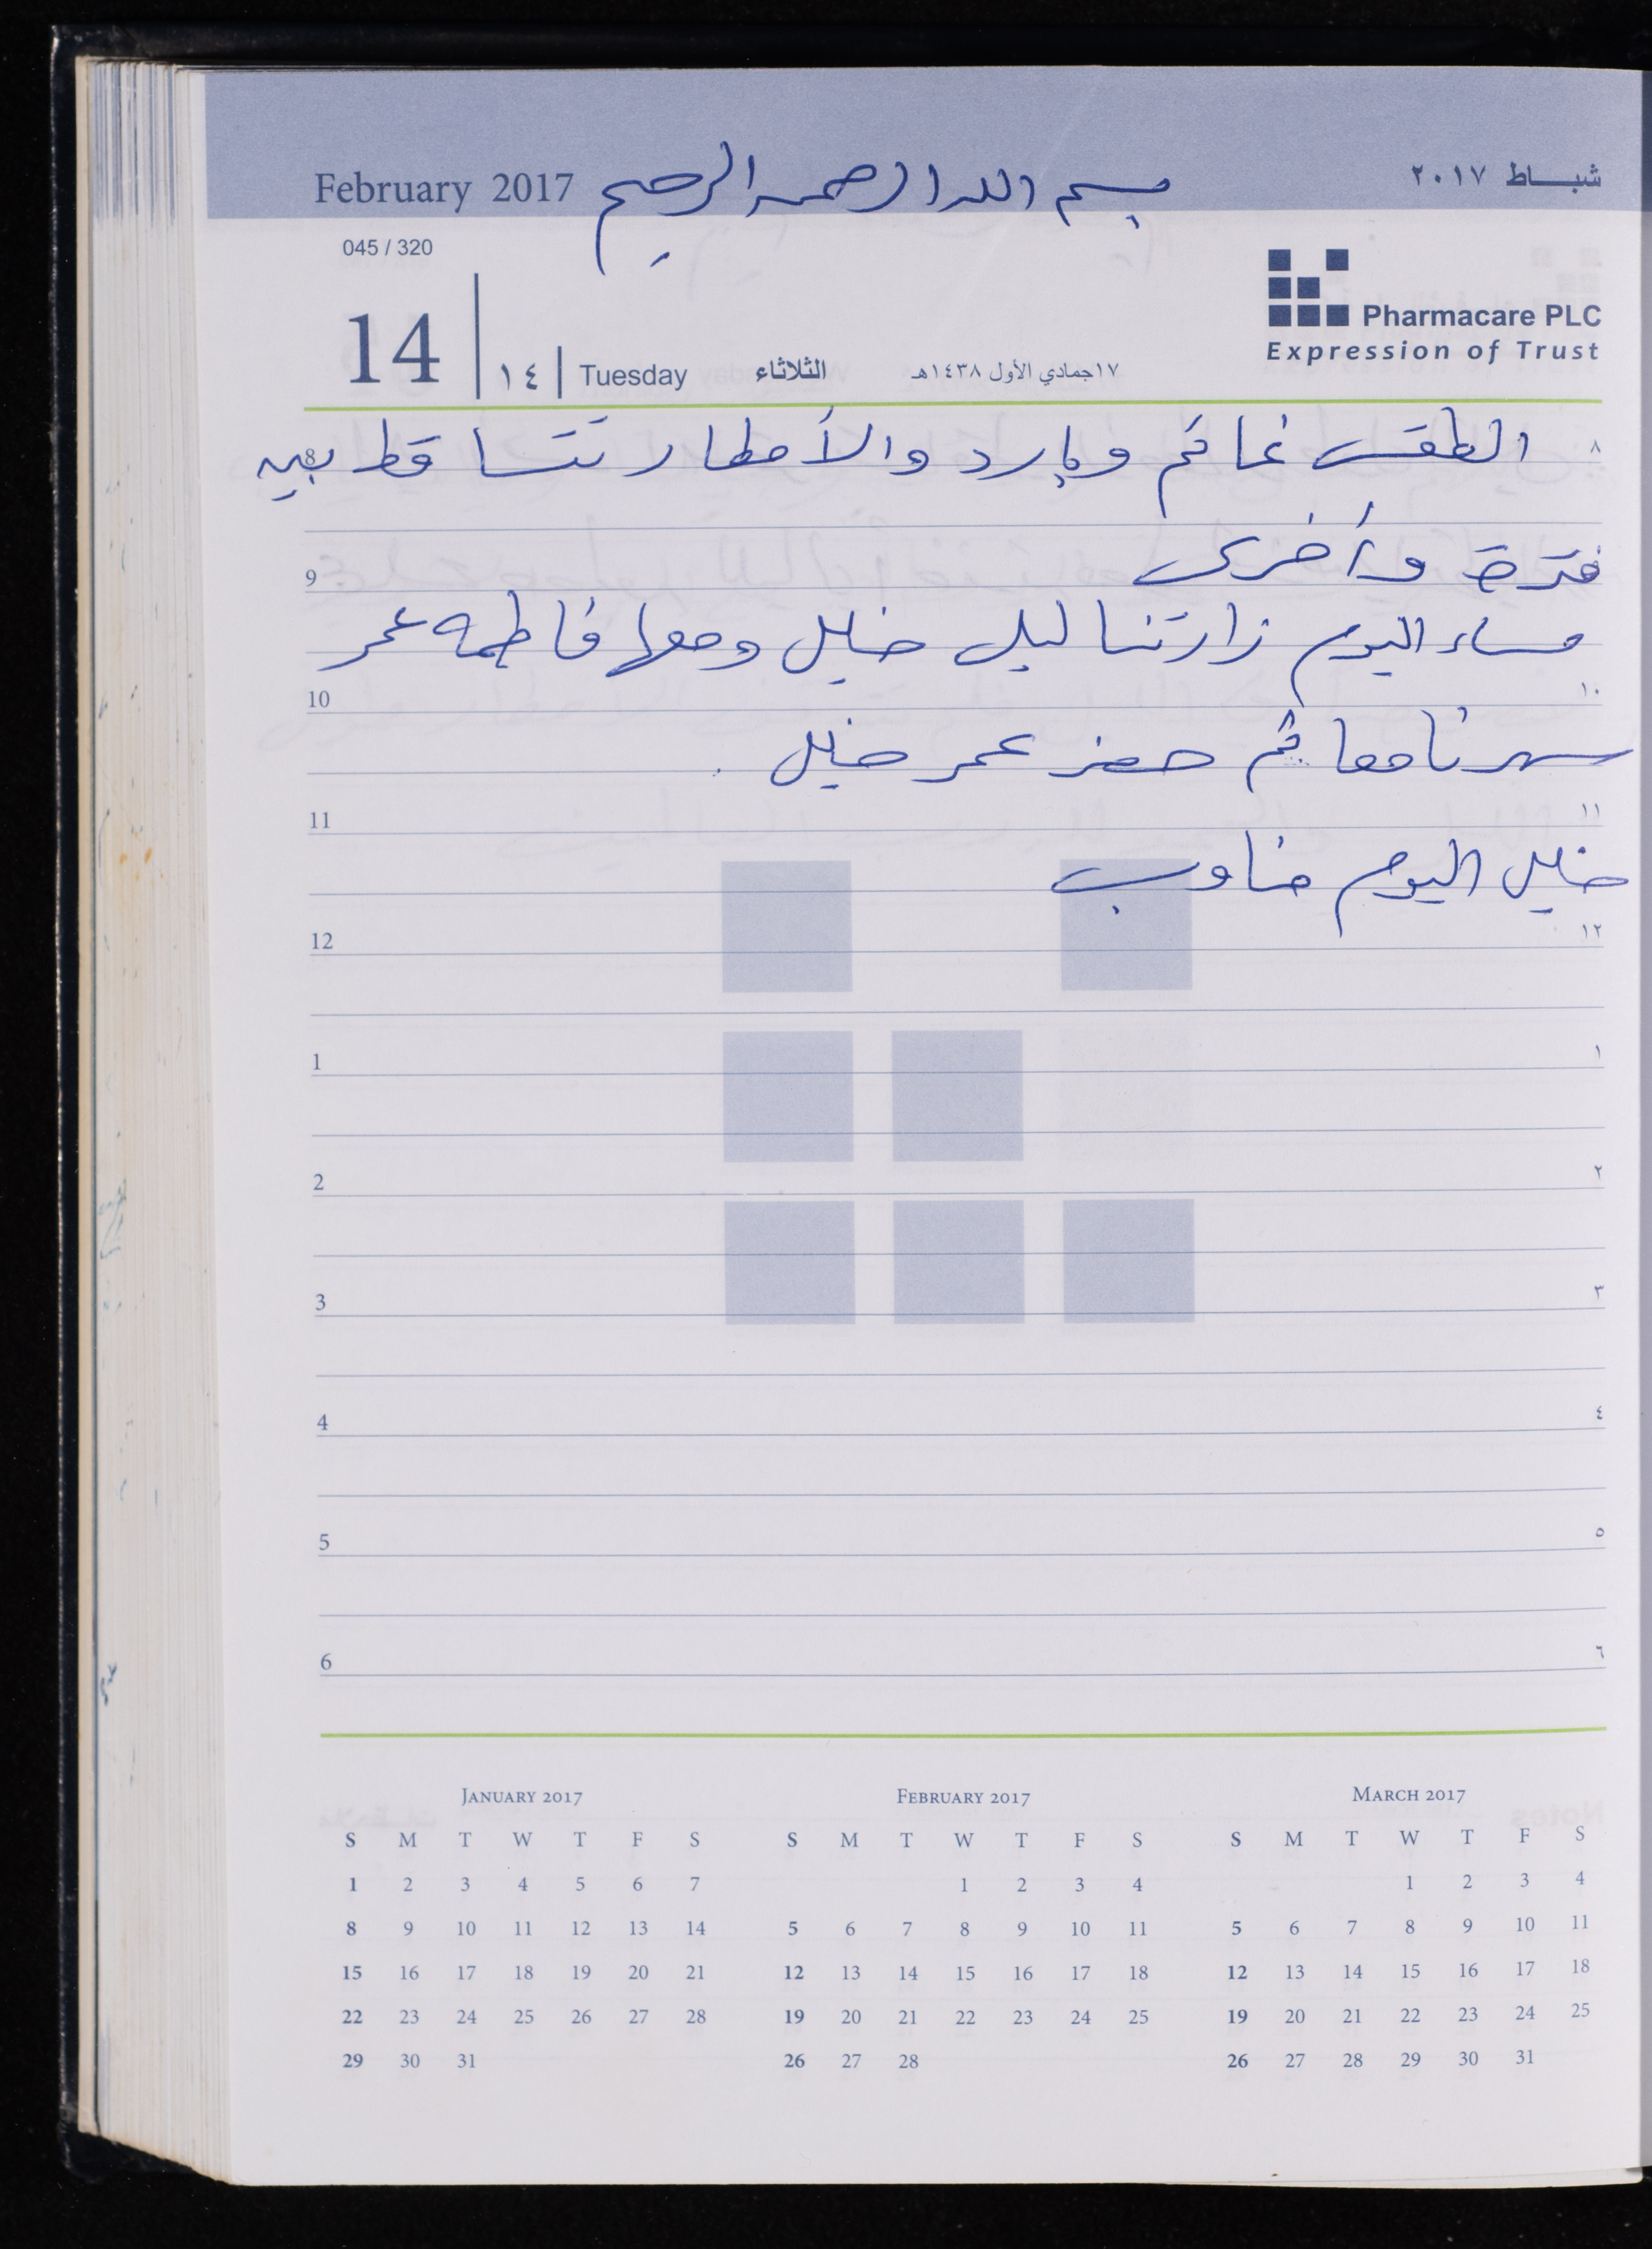 February 2017 بسم الله الرحمن الرحيم شباط ٢٠١٧
045 / 320
Pharmacare PLC
Expression of Trust
14 ١٤ Tuesday الثلاثاء ١٧جمادي الأول ١٤٣٨هـ
8 الطقس غائم وبارد والأمطار تتساقط بين ٨
فترة وأخرى
9
مساء اليوم زارتنا ليلى خليل ومعها فاطمه عمر
10 ١٠
سهرنا معا ثم حضر عمر خليل
11 ١١
خليل اليوم مناوب
12 ١٢
1 ١
2 ٢
3 ٣
4 ٤
5 ٥
6 ٦
JANUARY 2017
S M T W T F S
1 2 3 4 5 6 7
8 9 10 11 12 13 14
15 16 17 18 19 20 21
22 23 24 25 26 27 28
29 30 31
FEBRUARY 2017
S M T W T F S
1 2 3 4
5 6 7 8 9 10 11
12 13 14 15 16 17 18
19 20 21 22 23 24 25
26 27 28
MARCH 2017
S M T W T F S
1 2 3 4
5 6 7 8 9 10 11
12 13 14 15 16 17 18
19 20 21 22 23 24 25
26 27 28 29 30 31